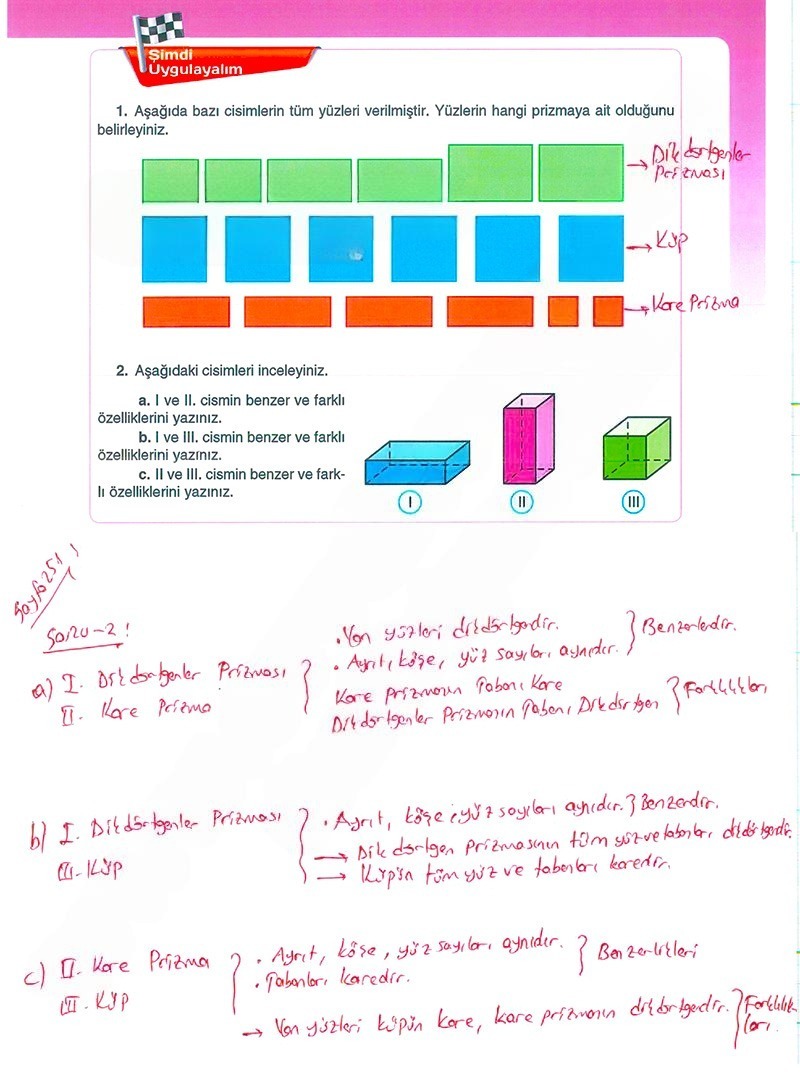 Şimdi
Uygulayalım
1. Aşağıda bazı cisimlerin tüm yüzleri verilmiştir. Yüzlerin hangi prizmaya ait olduğunu
belirleyiniz.
→ Dikdörtgenler
Prizması
→ Küp
→ Kare Prizma
2. Aşağıdaki cisimleri inceleyiniz.
a. I ve II. cismin benzer ve farklı
özelliklerini yazınız.
b. I ve III. cismin benzer ve farklı
özelliklerini yazınız.
c. II ve III. cismin benzer ve fark-
lı özelliklerini yazınız.
I
II
III
Sayfa 251!
Soru-2!
a) I. Dikdörtgenler Prizması
II. Kare Prizma
• Yan yüzleri dikdörtgendir.
• Ayrıt, köşe, yüz sayıları aynıdır.
} Benzerlerdir.
Kare prizmanın Tabanı Kare
Dikdörtgenler Prizmanın Tabanı Dikdörtgen
} Farklılıkları
b) I. Dikdörtgenler Prizması
III. Küp
• Ayrıt, köşe, yüz sayıları aynıdır. } Benzerdir.
→ Dikdörtgen Prizmasının tüm yüz ve tabanları dikdörtgendir.
→ Küpün tüm yüz ve tabanları karedir.
c) II. Kare Prizma
III. Küp
• Ayrıt, köşe, yüz sayıları aynıdır.
• Tabanları karedir.
} Benzerlikleri
→ Yan yüzleri küpün kare, kare prizmanın dikdörtgendir. } Farklılık-
ları.